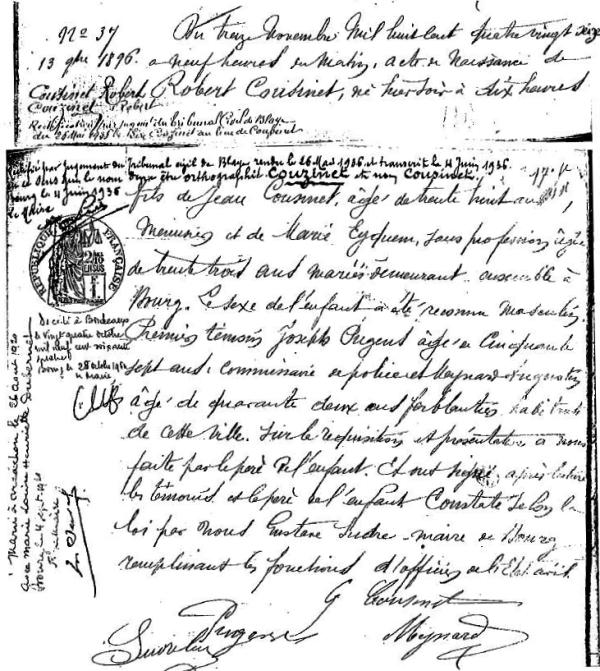 N° 37
Du treize Novembre Mil huit cent quatre vingt seize
13 9bre 1896
a neuf heures du Matin, acte de Naissance de
Cousinet Robert
Couzinet Robert
Robert Cousinet, né hier soir à six heures
Rectification par jugement du Tribunal Civil de Blaye
du 26 Mai 1936 Couzinet au lieu de Cousinet
par jugement du Tribunal civil de Blaye rendu le 26 Mai 1936 et transcrit le 11 Juin 1936
que le nom doit être orthographié Couzinet et non Cousinet
Bourg le 11 Juin 1936
Le Maire
fils de Jean Cousinet, âgé de trente huit ans,
Menuisier et de Marie Eyquem, sans profession, âgée
de trente trois ans mariés demeurant ensemble à
Bourg. Le sexe de l'enfant a été reconnu Masculin.
Premier témoin Joseph Pugens âgé de Cinquante
sept ans, Commissaire de police et Meynard Augustin
âgé de quarante deux ans ferblantier, habitants
de cette ville. Sur la requisition et présentation à nous
faite par le père de l'enfant. Et ont signé après lecture
les témoins et le père de l'enfant Constaté selon la
loi par Nous Gustave Sudre maire de Bourg
remplissant les fonctions d'officier de l'Etat civil.
REPUBLIQUE FRANÇAISE
Décédé à Bordeaux
le vingt quatre octobre
mil neuf cent soixante
Bourg, le 28 octobre
Le Maire
Marié à Arcachon le 26 août 1920
avec Marie Louise Henriette
Bourg le 4 sept. 1920
G Cousinet
Pugens
Meynard